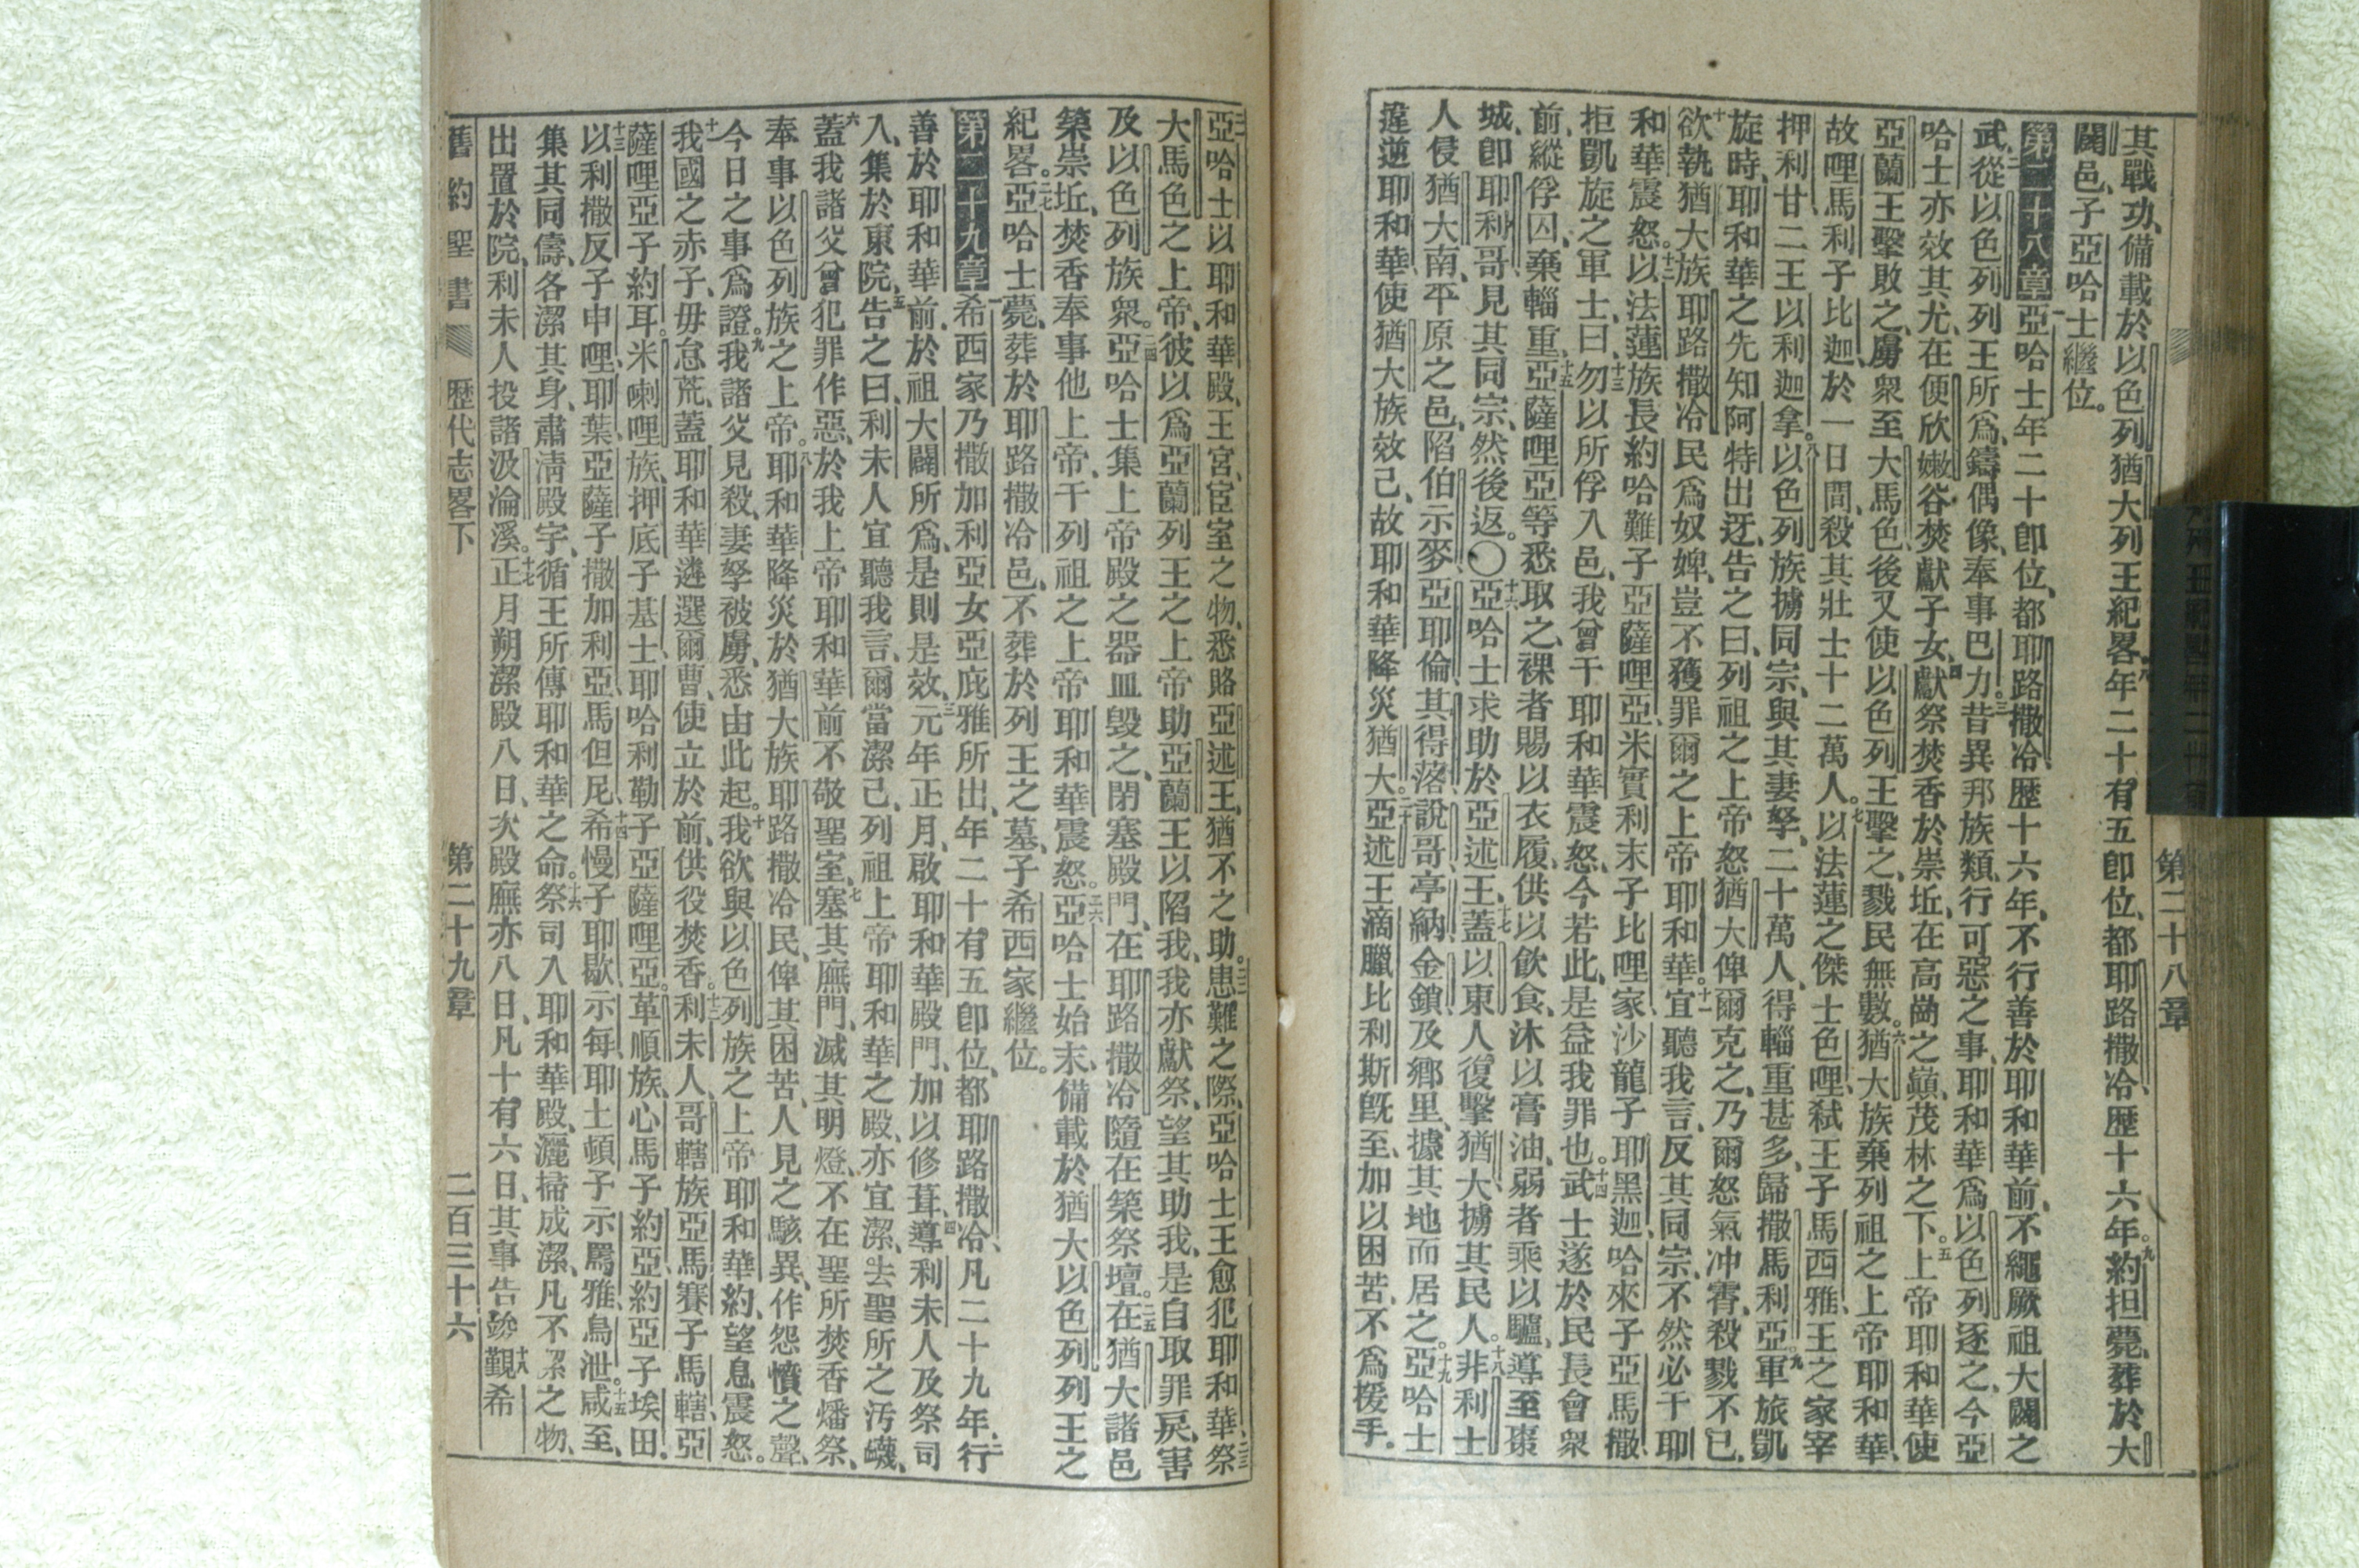 第二十八章
其戰功、備載於以色列猶大列王紀畧、八年二十有五卽位、都耶路撒冷、歷十六年。九約担薨、葬於大
闢邑、子亞哈士繼位。
第二十八章一亞哈士年二十卽位、都耶路撒冷歷十六年、不行善於耶和華前、不繩厥祖大闢之
武、二從以色列列王所爲、鑄偶像、奉事巴力。三昔異邦族類、行可惡之事、耶和華爲以色列逐之、今亞
哈士亦效其尤、在便欣嫩谷焚獻子女、四獻祭焚香於崇坵、在高崗之巔、茂林之下。五上帝耶和華使
亞蘭王擊敗之、虜衆至大馬色、後又使以色列王擊之、戮民無數。六猶大族棄列祖之上帝耶和華、
故哩馬利子比迦、於一日間、殺其壯士十二萬人。七以法蓮之傑士色哩、弑王子馬西雅、王之家宰
押利甘二王以利迦拿。八以色列族擄同宗、與其妻孥、二十萬人、得輜重甚多、歸撒馬利亞。九軍旅凱
旋時、耶和華之先知阿特出迓、告之曰、列祖之上帝怒猶大俾爾克之、乃爾怒氣冲霄、殺戮不已、
十欲執猶大族耶路撒冷民爲奴婢、豈不獲罪爾之上帝耶和華。十一宜聽我言、反其同宗、不然必干耶
和華震怒。十二以法蓮族長約哈難子亞薩哩亞、米實利末子比哩家、沙龍子耶黑迦、哈來子亞馬撒
拒凱旋之軍士、曰、十三勿以所俘入邑、我曾干耶和華震怒、今若此、是益我罪也。十四武士遂於民長會衆
前、縱俘囚、棄輜重、十五亞薩哩亞等悉取之、裸者賜以衣履、供以飲食、沐以膏油、弱者乘以驢、導至棗
城、卽耶利哥、見其同宗、然後返。〇十六亞哈士求助於亞述王、蓋十七以東人、復擊猶大擄其民人。十八非利士
人侵猶大南、平原之邑、陷伯示麥、亞耶倫、其得落、說哥、亭納、金鎖、及鄉里、據其地而居之。十九亞哈士
違逆耶和華、使猶大族效己、故耶和華降災猶大。二十亞述王滴臘比利斯旣至、加以困苦、不爲援手。
亞哈士以耶和華殿、王宮、宦室之物、悉賂亞述王、猶不之助。二二患難之際、亞哈士王愈犯耶和華、二三祭
大馬色之上帝、彼以爲亞蘭列王之上帝助亞蘭王以陷我、我亦獻祭、望其助我、是自取罪戾、害
及以色列族衆。二四亞哈士集上帝殿之器皿毀之、閉塞殿門、在耶路撒冷隨在築祭壇。二五在猶大諸邑
築崇坵、焚香奉事他上帝、干列祖之上帝耶和華震怒。二六亞哈士始末、備載於猶大以色列列王之
紀畧。二七亞哈士薨、葬於耶路撒冷邑、不葬於列王之墓、子希西家繼位。
第二十九章一希西家乃撒加利亞女亞庇雅所出、年二十有五卽位、都耶路撒冷、凡二十九年、二行
善於耶和華前、於祖大闢所爲、是則是效、三元年正月、啟耶和華殿門、加以修葺、四導利未人及祭司
入、集於東院、五告之曰、利未人宜聽我言、爾當潔己、列祖上帝耶和華之殿、亦宜潔、去聖所之汚穢、
六蓋我諸父曾犯罪作惡、於我上帝耶和華前不敬聖室、七塞其廡門、滅其明燈、不在聖所焚香燔祭、
奉事以色列族之上帝。八耶和華降災於猶大族耶路撒冷民、俾其困苦、人見之駭異、作怨憤之聲、
今日之事爲證。九我諸父見殺、妻孥被虜、悉由此起。十我欲與以色列族之上帝耶和華約、望息震怒。
十一我國之赤子、毋怠荒、蓋耶和華遴選爾曹、使立於前、供役焚香。十二利未人、哥轄族亞馬賽子馬轄、亞
薩哩亞子約耳。米喇哩族、押底子基士、耶哈利勒子亞薩哩亞。革順族、心馬子約亞、約亞子埃田。
十三以利撒反子申哩、耶葉、亞薩子撒加利亞、馬但尼、十四希慢子耶歇、示每、耶土頓子示馬雅、烏泄。十五咸至、
集其同儔、各潔其身、肅淸殿宇、循王所傳耶和華之命。十六祭司入耶和華殿、灑掃成潔、凡不潔之物、
出置於院、利未人投諸汲淪溪。十七正月朔潔殿八日、次殿廡亦八日、凡十有六日、其事告竣、十八覲希
舊約聖書 歷代志畧下 第二十九章 二百三十六